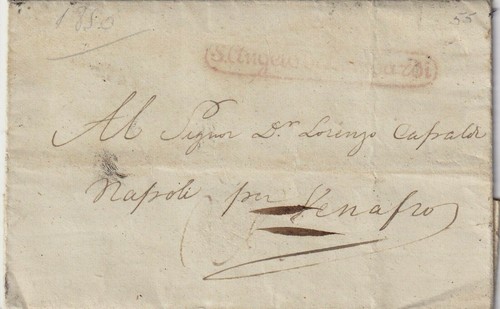 1850
55
S. Angelo de Lombardi
Al Signor D.r Lorenzo Capaldi
Napoli per Venafro